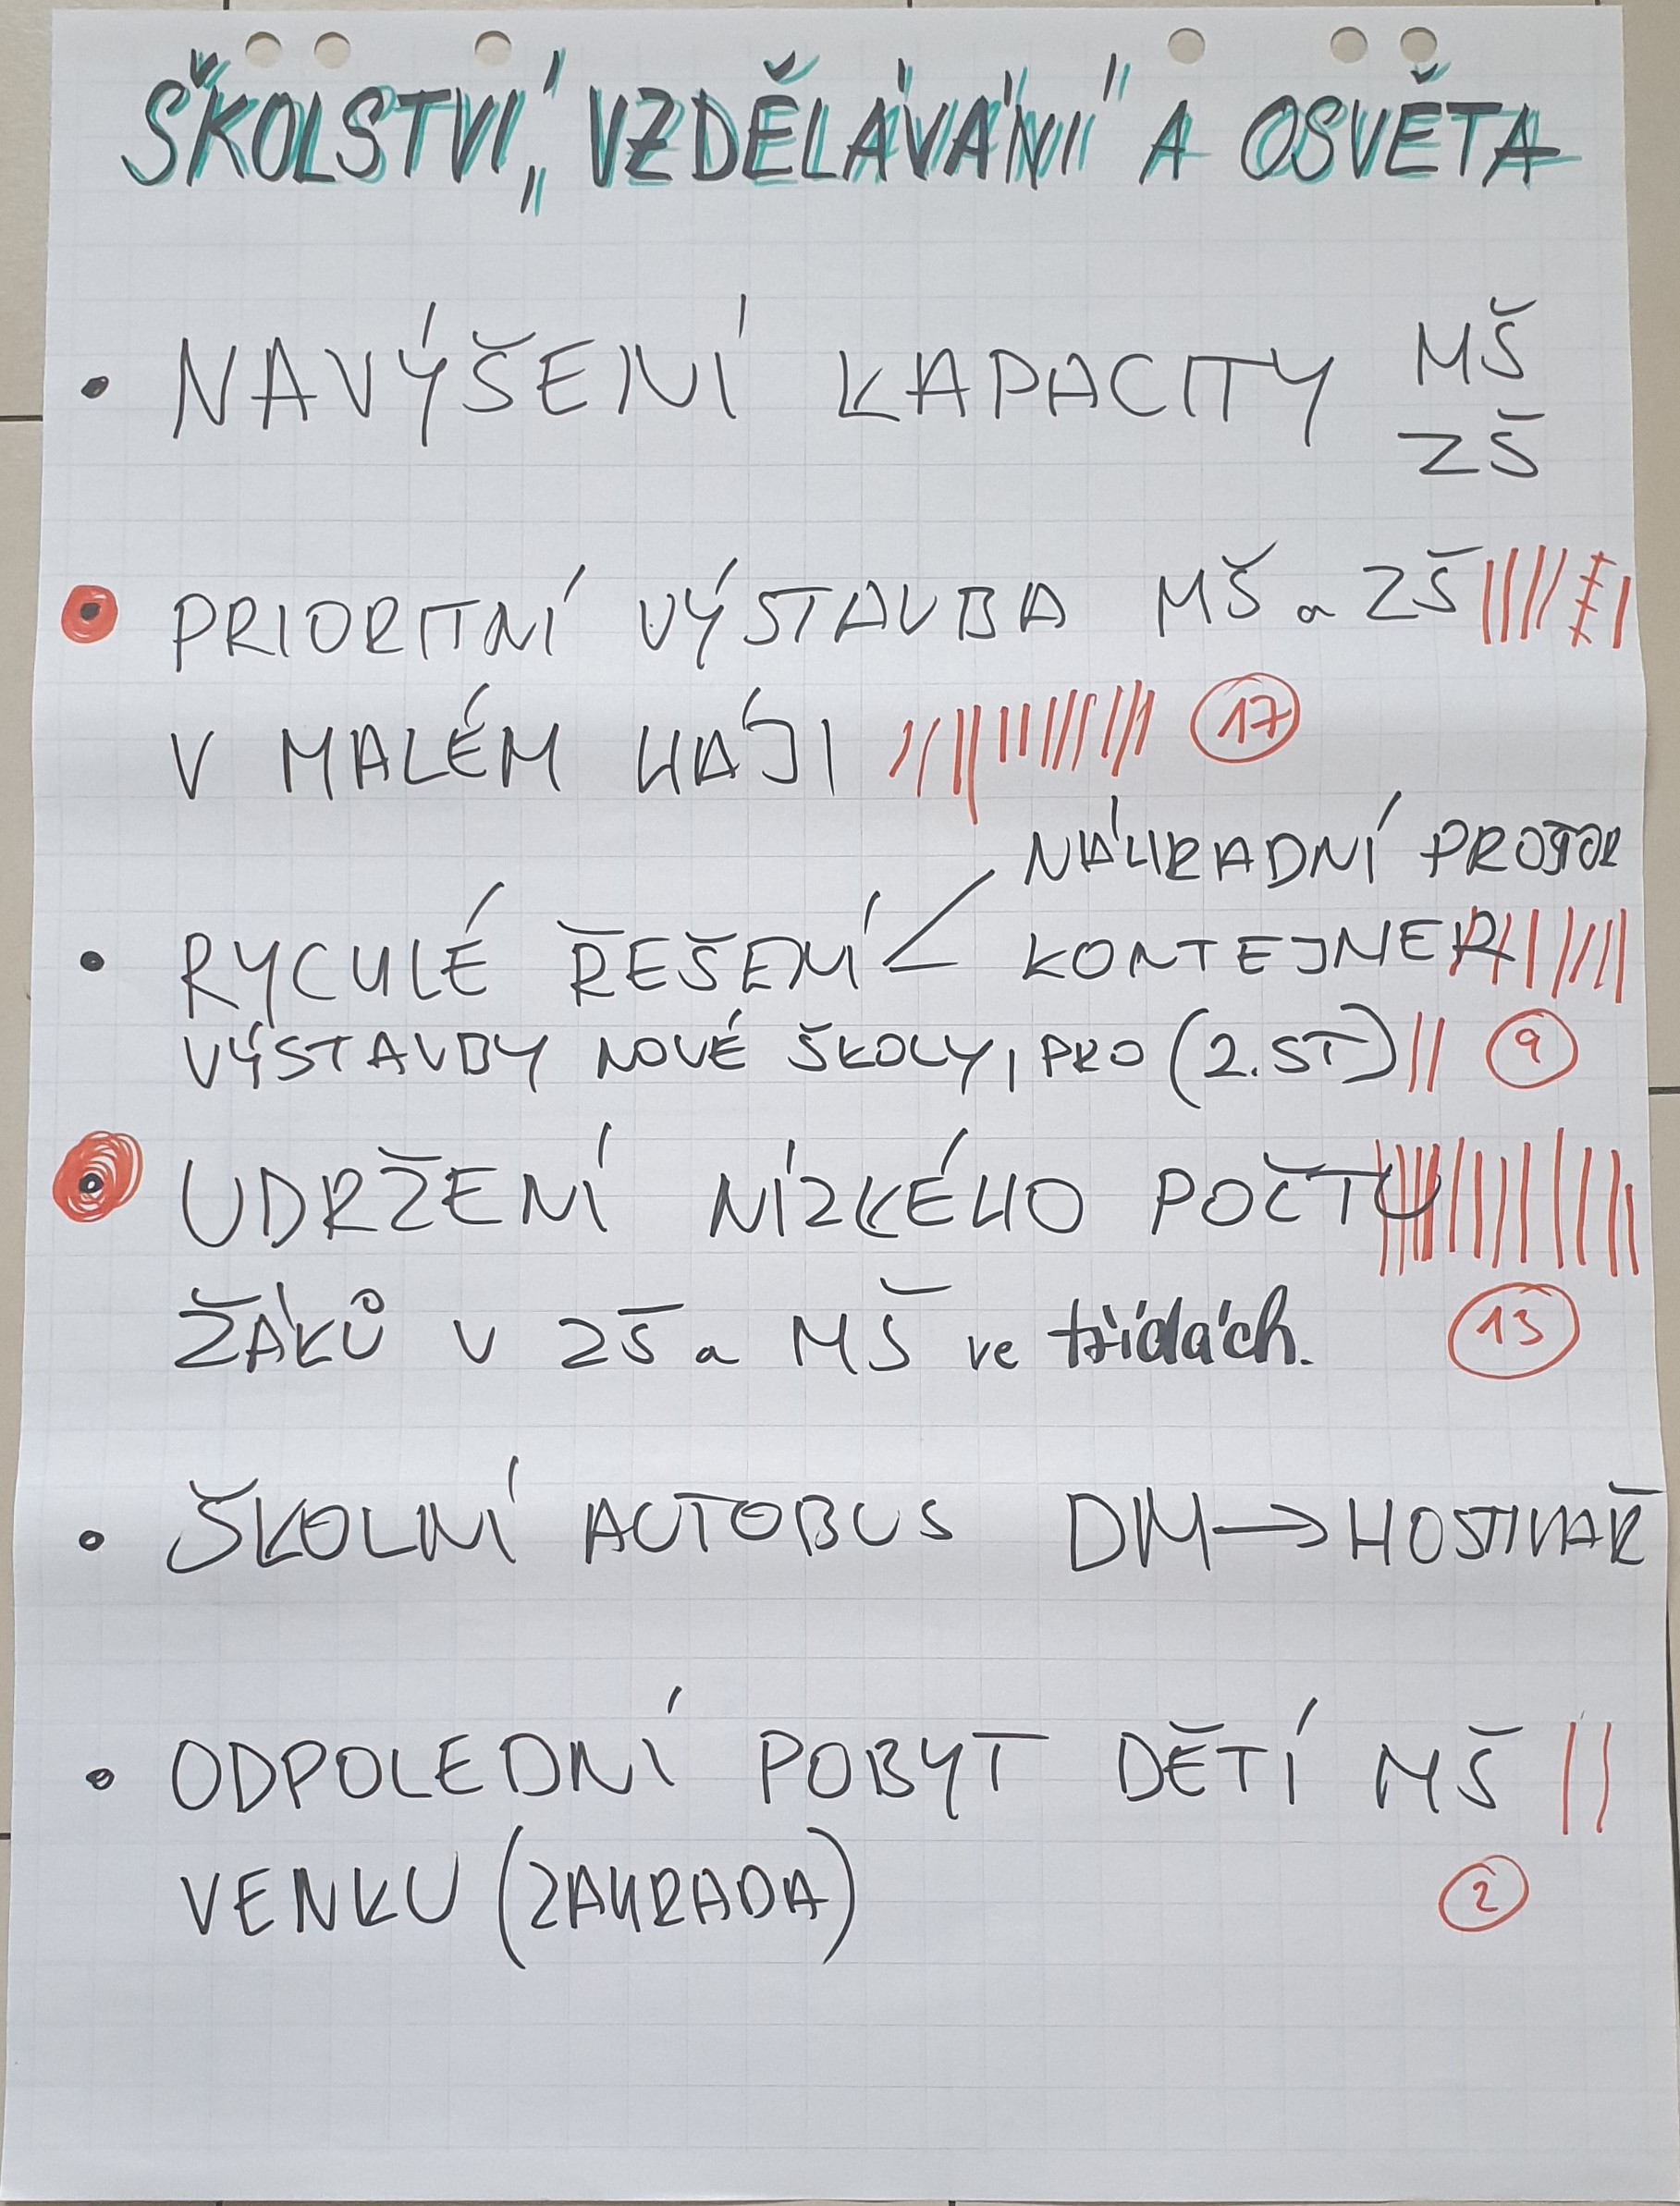 ŠKOLSTVÍ, VZDĚLÁVÁNÍ A OSVĚTA
• NAVÝŠENÍ KAPACITY MŠ
ZŠ
• PRIORITNÍ VÝSTAVBA MŠ a ZŠ
V MALÉM HÁJI 17
NÁHRADNÍ PROSTOR
• RYCHLÉ ŘEŠENÍ KONTEJNER
VÝSTAVBY NOVÉ ŠKOLY, PRO (2.ST) 9
• UDRŽENÍ NÍZKÉHO POČTU
ŽÁKŮ V ZŠ a MŠ ve třídách. 13
• ŠKOLNÍ AUTOBUS DM → HOSTIVAŘ
• ODPOLEDNÍ POBYT DĚTÍ MŠ
VENKU (ZAHRADA) 2